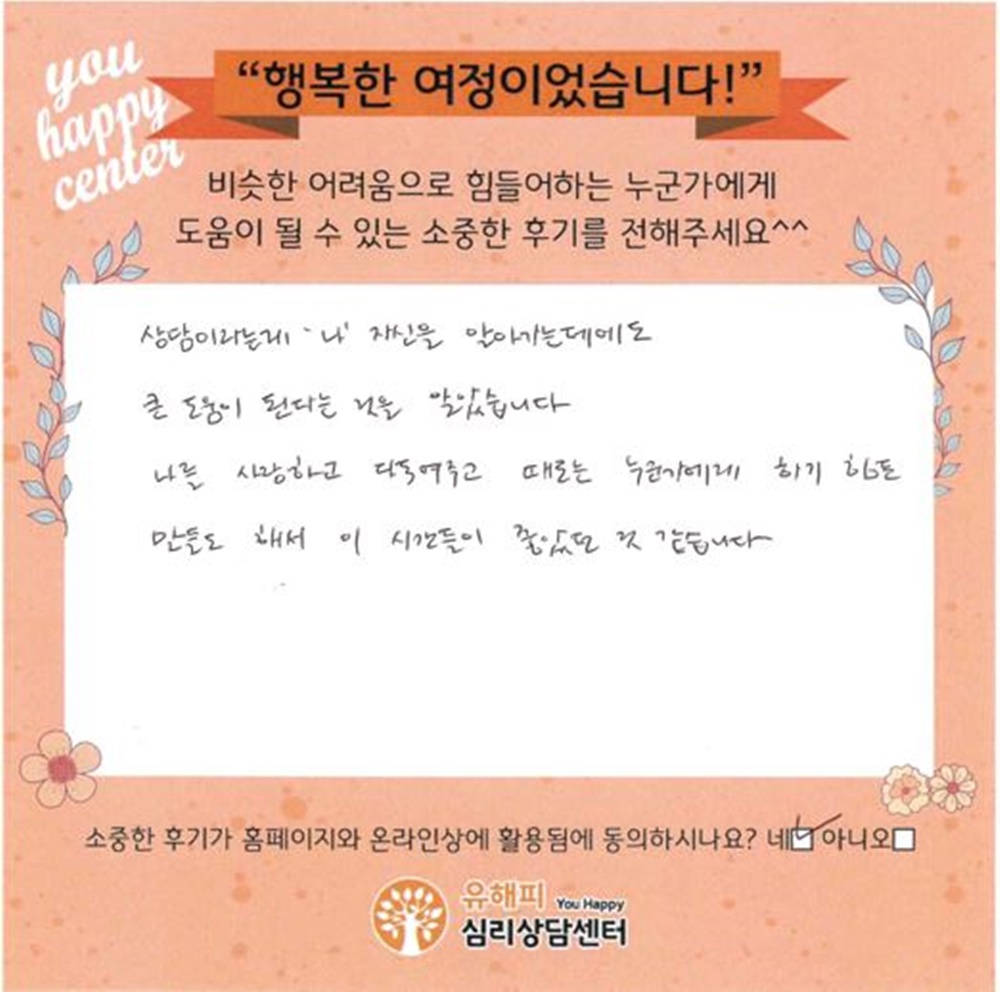 you
happy
center
“행복한 여정이었습니다!”
비슷한 어려움으로 힘들어하는 누군가에게
도움이 될 수 있는 소중한 후기를 전해주세요^^
상담이라는게 '나' 자신을 알아가는데에도
큰 도움이 된다는 것을 알았습니다
나를 사랑하고 다독여주고 때로는 누군가에게 하기 힘든
말들도 해서 이 시간들이 좋았던 것 같습니다
소중한 후기가 홈페이지와 온라인상에 활용됨에 동의하시나요? 네☑ 아니오☐
유해피 You Happy
심리상담센터